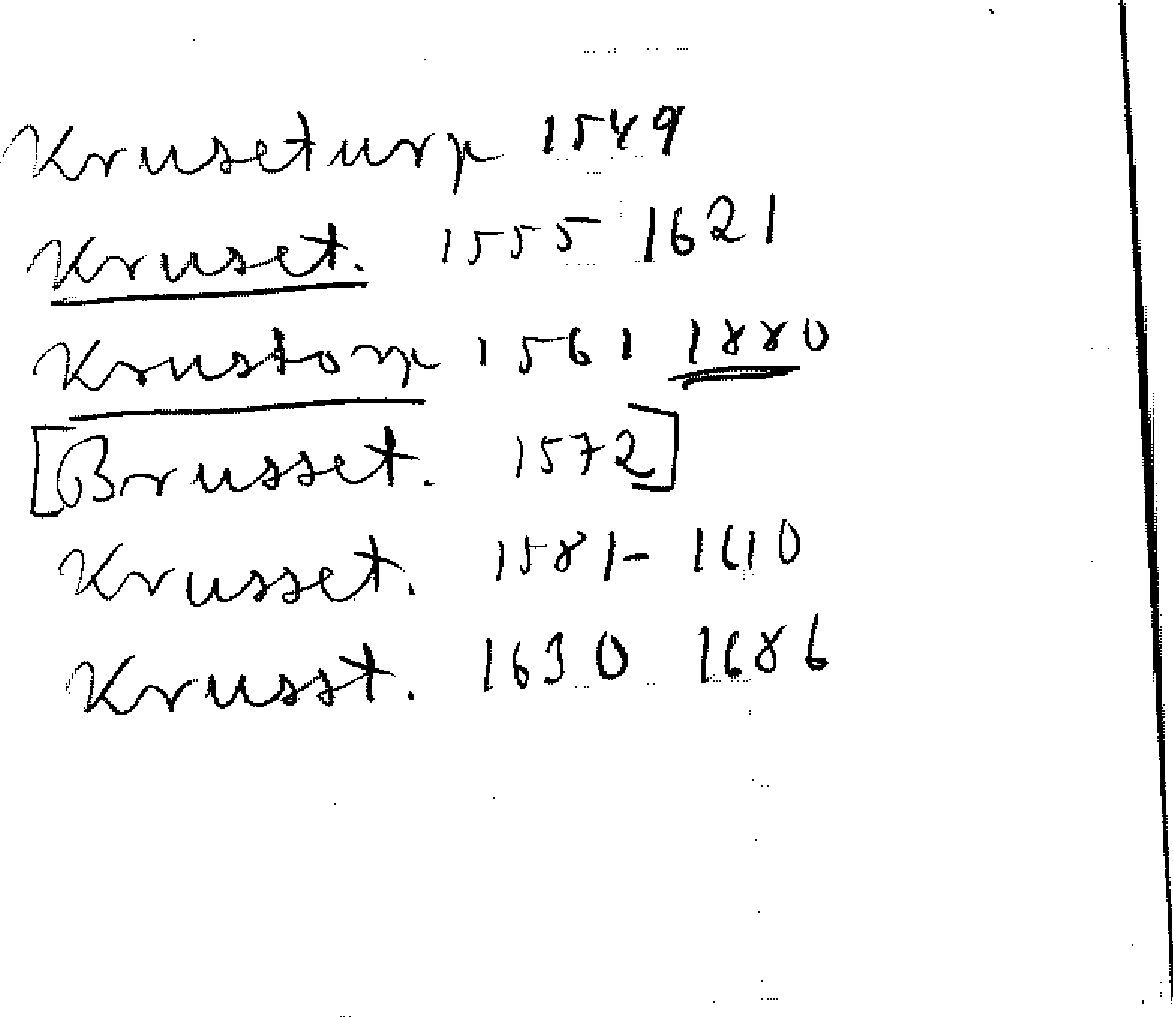 Kruseturp 1549
Kruset. 1555 1621
Krustorp 1561 1880
[Brusset. 1572]
Krusset. 1581- 1610
Krusst. 1630 1686